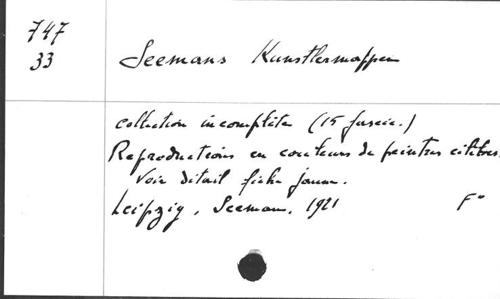 747
33
Seemans Kunstlermappen
collection incomplète (15 fascic.)
Reproductions en couleurs de peintres célèbres.
Voir détail fiche jaune.
Leipzig, Seeman, 1921 F°